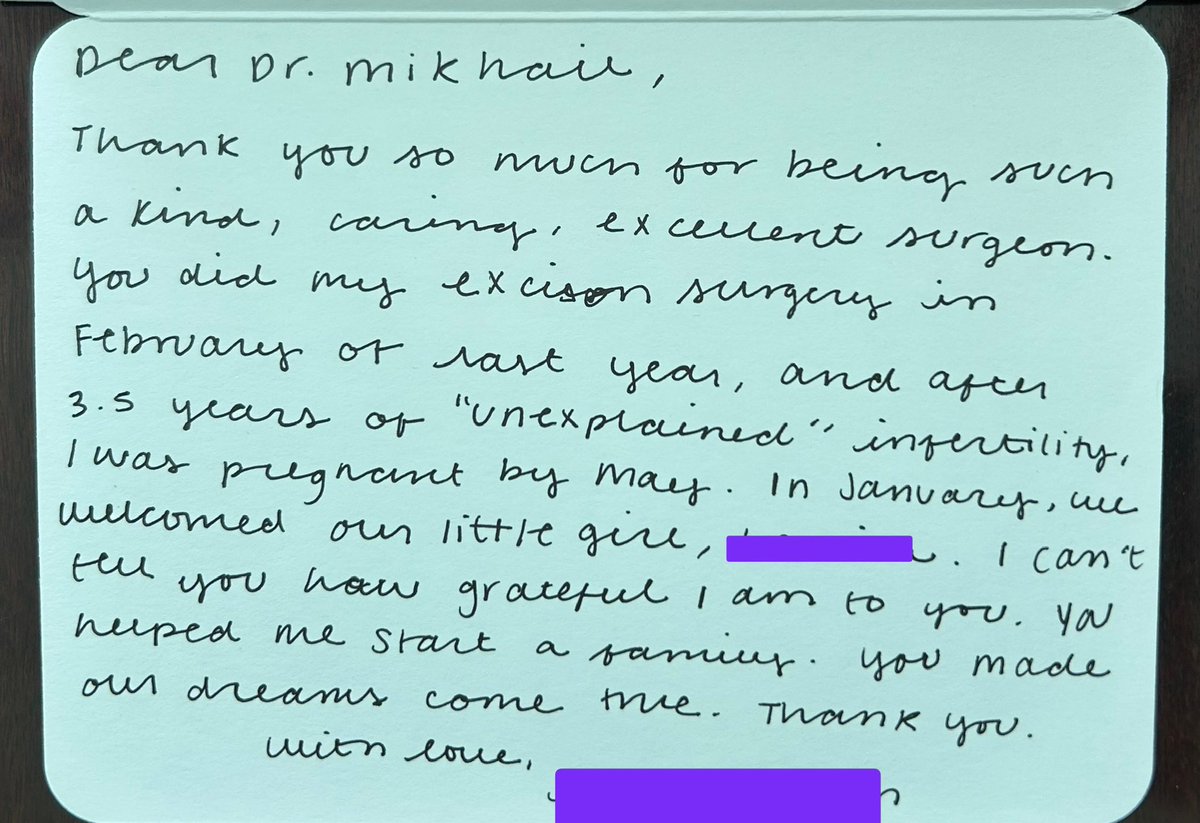 Dear Dr. Mikhail,
Thank you so much for being such
a kind, caring, excellent surgeon.
You did my excison surgery in
February of last year, and after
3.5 years of "unexplained" infertility,
I was pregnant by May. In January, we
welcomed our little girl, . I can't
tell you how grateful I am to you. You
helped me start a family. You made
our dreams come true. Thank you.
With love,